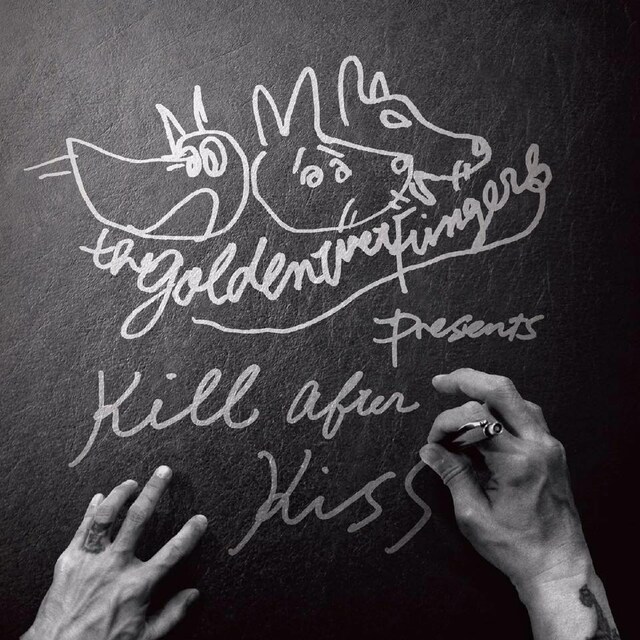 the goldenwetfingers
presents
Kill after
Kiss